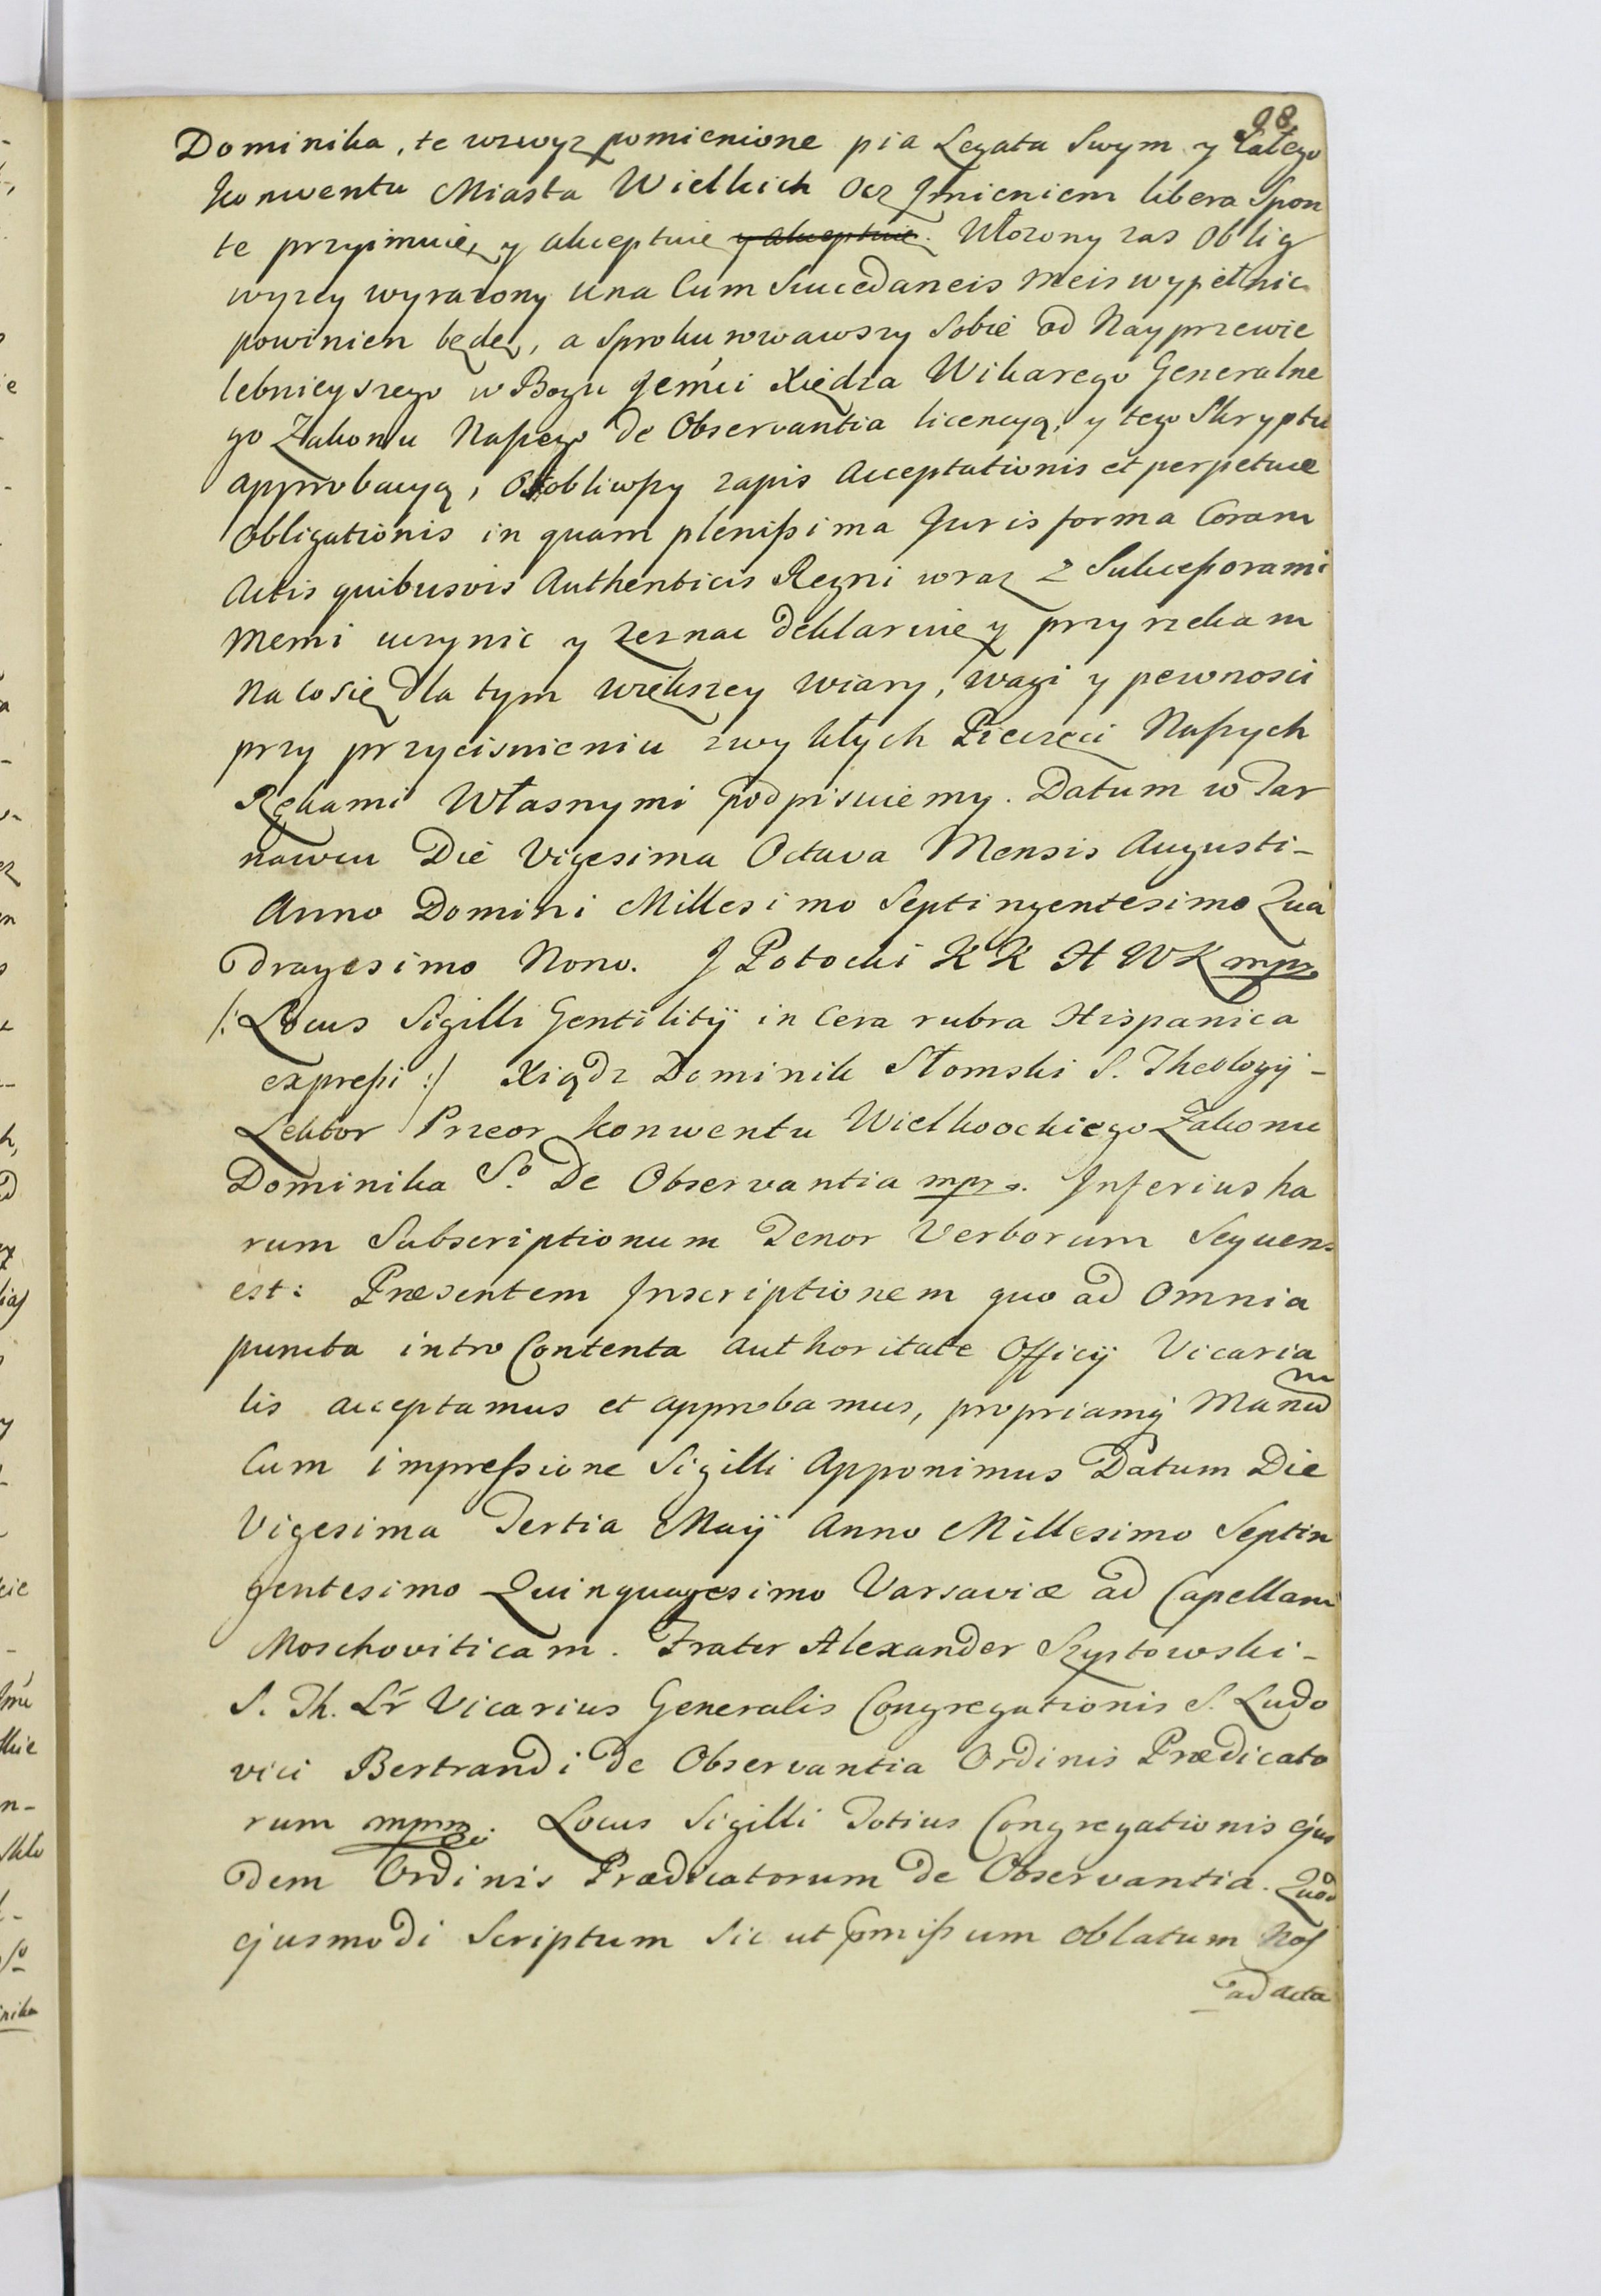 98
Dominika, te wzwyz pomienione pia Legata Swym y Całego
Konwentu Miasta Wielkich Ocz Jmieniem libera Spon
te przyimuię y akceptuie y akceptuie. Włozony zas Oblig
wyzey wyrazony una Cum Succedaneis Meis wypełnic
powinien będę, a Sprokurowawszy Sobie od Nayprzewie
lebnieyszego w Bogu Jemći Xiędza Wikarego Generalne
go Zakonu Naszego de Observantia licencyą, y tego Skryptu
approbacyą, Osobliwszy zapis Acceptationis et perpetuæ
Obligationis in quam plenissima Juris forma Coram
Actis quibusvis Authenticis Regni wraz z Sukcessorami
Memi uczynic y zeznac deklaruię y przyrzekam
Na co się dla tym większey wiary, wagi y pewnosci
przy przycisnieniu zwykłych Pieczęci Naszych
Rękami Własnymi podpisuiemy. Datum w Tar
nawcu Die Vigesima Octava Mensis Augusti -
Anno Domini Millesimo Septingentesimo Qua
dragesimo Nono. J Potocki K K H W K mpr
/: Locus Sigilli Gentilitij in Cera rubra Hispanica
expressi :/ Xiądz Dominik Słomski S. Theologij -
Lektor Przeor Konwentu Wielkoockiego Zakonu
Dominika So. De Observantia mpr. Inferius ha
rum Subscriptionum Tenor Verborum Sequens
est: Præsentem Inscriptionem quo ad Omnia
puncta intro Contenta authoritate Officij Vicaria
lis acceptamus et approbamus, propriamq Manum
Cum impressione Sigilli Apponimus Datum Die
Vigesima Tertia Maij Anno Millesimo Septin
gentesimo Quinquagesimo Varsaviæ ad Capellam
Moschoviticam. Frater Alexander Szystowski -
S. Th. Lr Vicarius Generalis Congregationis S. Ludo
vici Bertrandi de Observantia Ordinis Prædicato
rum mpr. Locus Sigilli Totius Congregationis ejus
dem Ordinis Prædicatorum de Observantia. Quod
ejusmodi Scriptum Sic ut pmissum oblatum Nos
ad acta